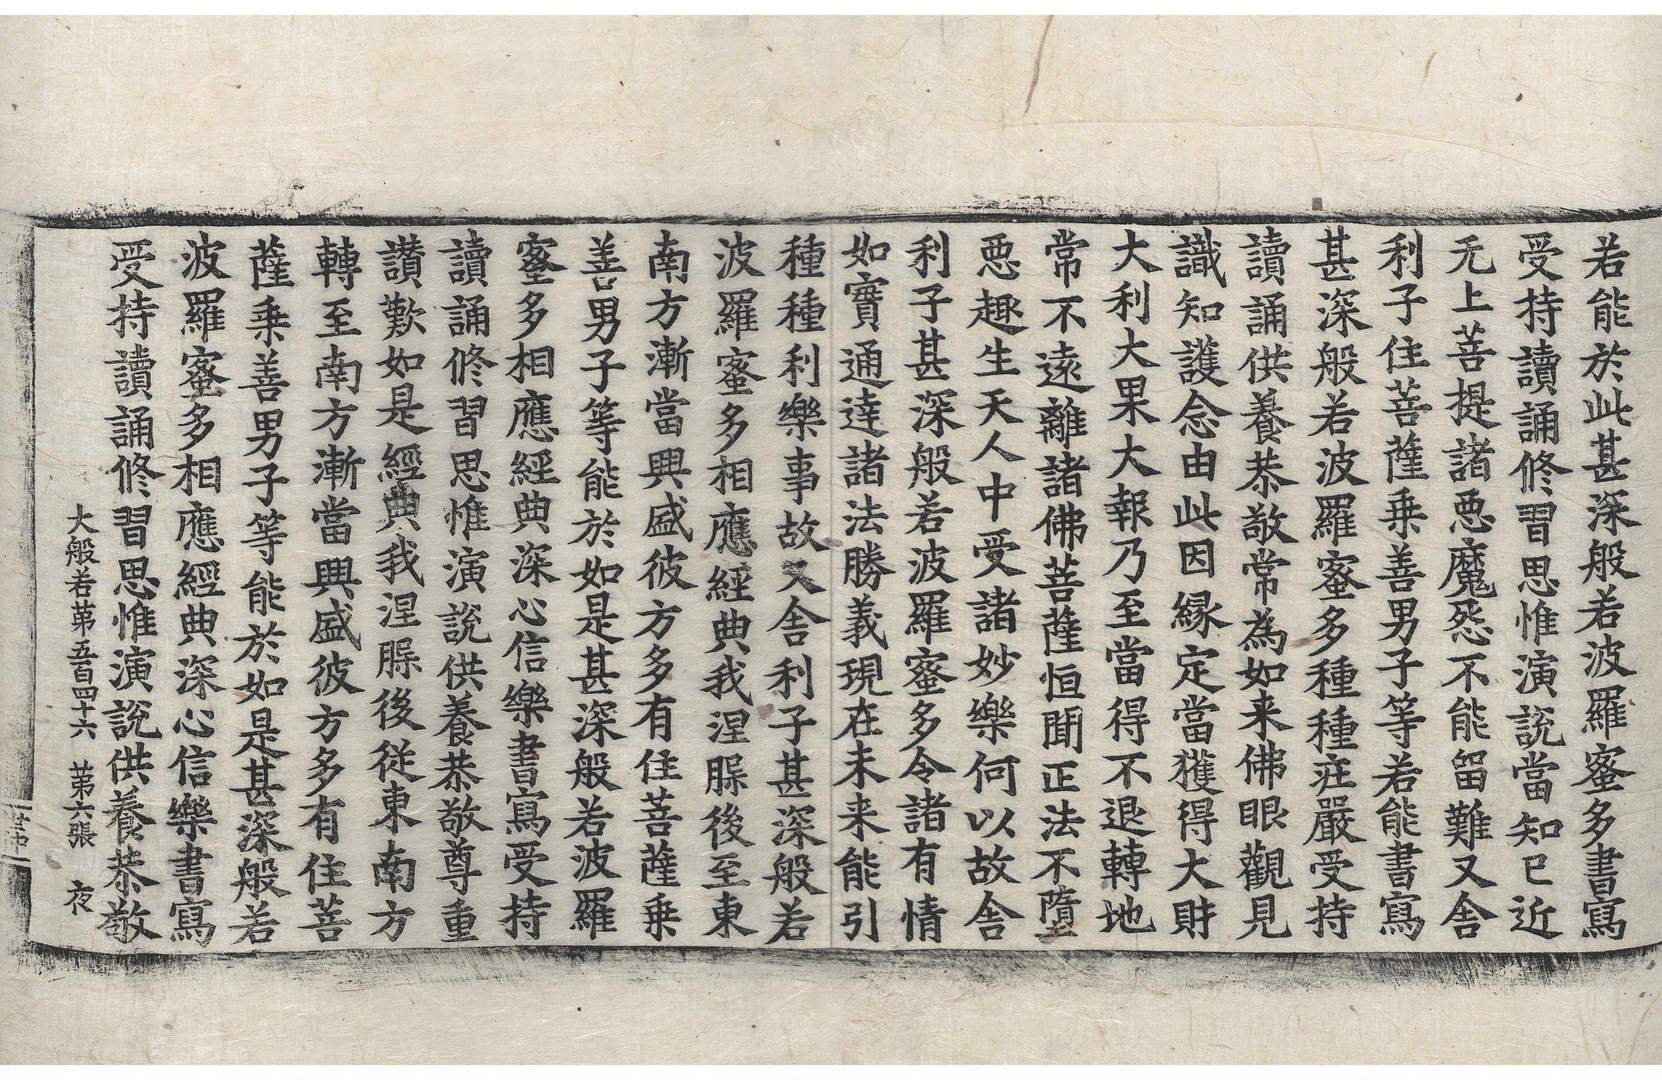 若能於此甚深般若波羅蜜多書寫
受持讀誦修習思惟演說當知已近
无上菩提諸惡魔怨不能留難又舍
利子住菩薩乗善男子等若能書寫
甚深般若波羅蜜多種種莊嚴受持
讀誦供養恭敬常為如来佛眼觀見
識知護念由此因縁定當獲得大財
大利大果大報乃至當得不退轉地
常不遠離諸佛菩薩恒聞正法不墮
惡趣生天人中受諸妙樂何以故舍
利子甚深般若波羅蜜多令諸有情
如實通達諸法勝義現在未来能引
種種利樂事故又舍利子甚深般若
波羅蜜多相應經典我涅槃後至東
南方漸當興盛彼方多有住菩薩乗
善男子等能於如是甚深般若波羅
蜜多相應經典深心信樂書寫受持
讀誦修習思惟演說供養恭敬尊重
讃歎如是經典我涅槃後從東南方
轉至南方漸當興盛彼方多有住菩
薩乗善男子等能於如是甚深般若
波羅蜜多相應經典深心信樂書寫
受持讀誦修習思惟演說供養恭敬
大般若第五百四十六 第六張 夜